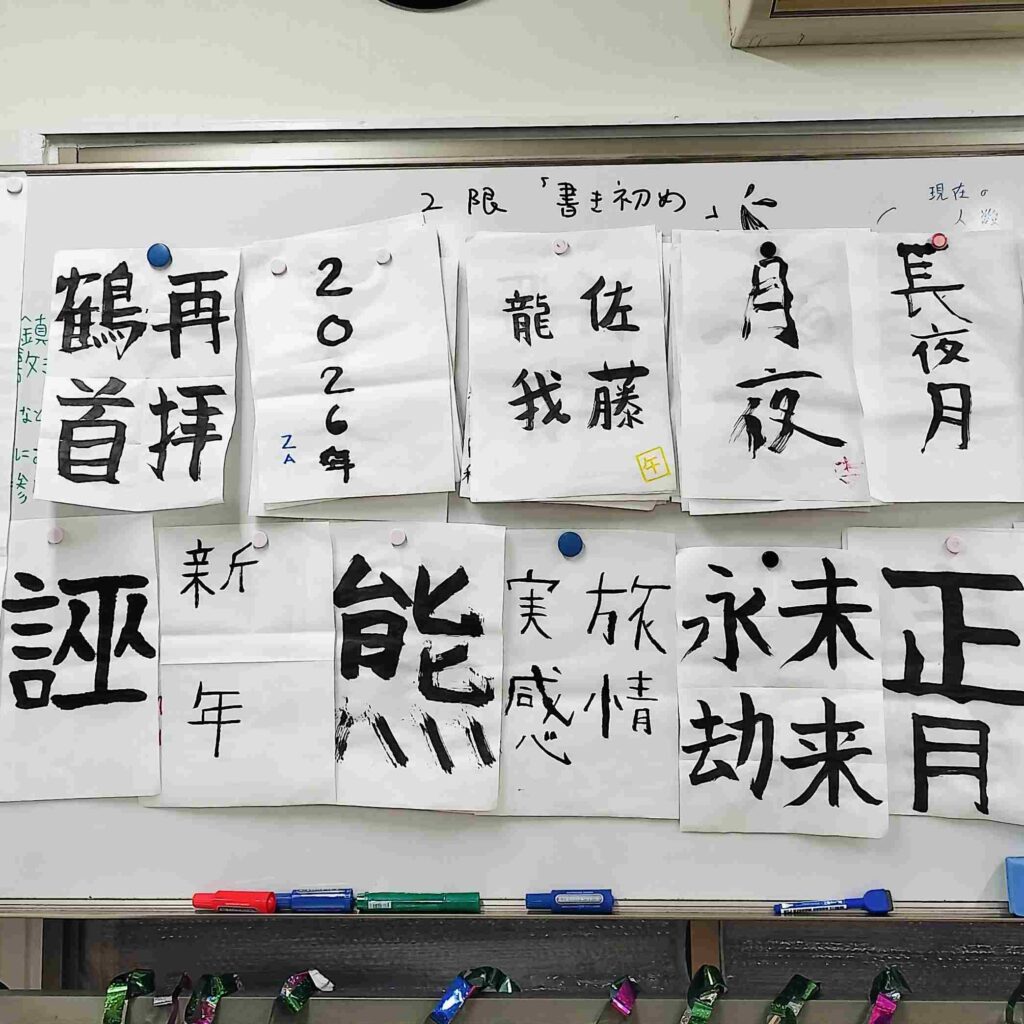 2限 「書き初め」
現在の
人数
再拝
鶴首
2026年
ZA
佐藤
龍我
午
月夜
長夜月
誣
新年
熊
旅情
実感
未来
永劫
正月